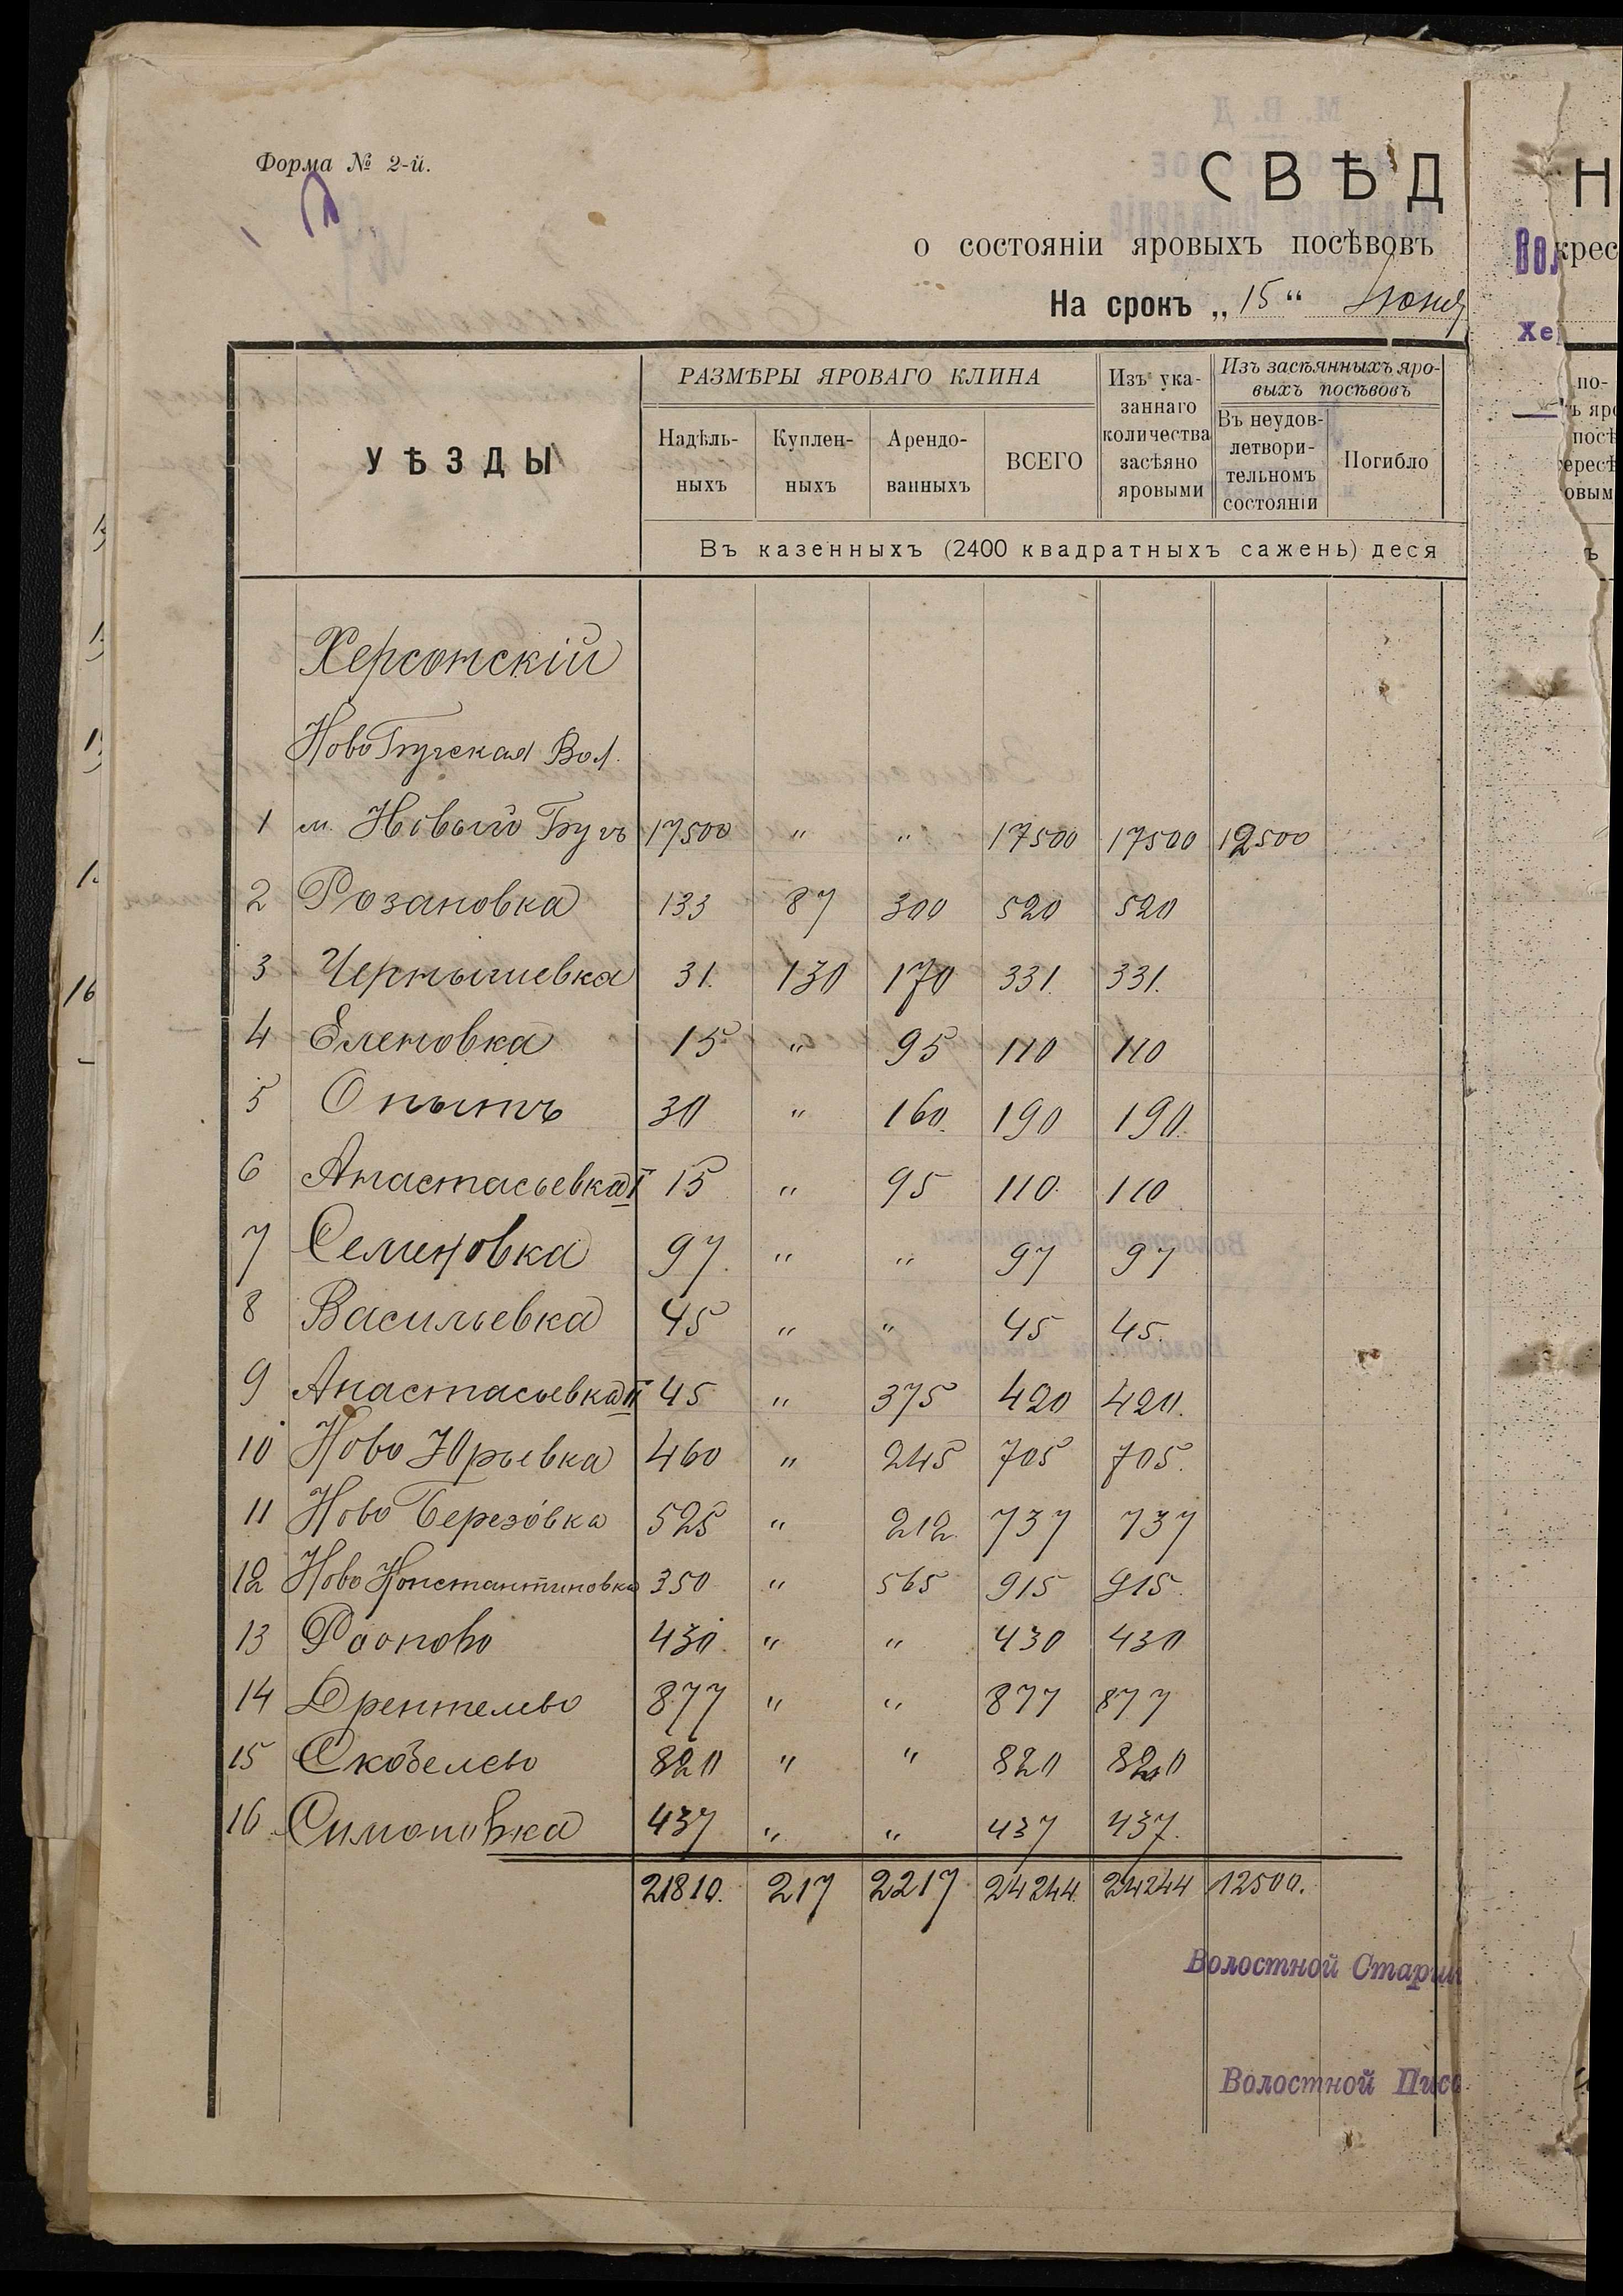 Форма № 2-й.
СВѢД
о состояніи яровыхъ посѣвовъ
На срокъ „ 15 “ Іюня
УѢЗДЫ
РАЗМѢРЫ ЯРОВАГО КЛИНА
Надѣль-
ныхъ
Куплен-
ныхъ
Арендо-
ванныхъ
ВСЕГО
Изъ ука-
заннаго
количества
засѣяно
яровыми
Изъ засѣянныхъ яро-
выхъ посѣвовъ
Въ неудов-
летвори-
тельномъ
состояніи
Погибло
Въ казенныхъ (2400 квадратныхъ сажень) деся
Херсонскій
Ново Бугская Вол.
1 м. Новый Бугъ 17500 " " 17500 17500 12500
2 Розановка 133 87 300 520 520
3 Чернышевка 31. 130 170 331. 331.
4 Еленовка 15 " 95 110 110
5 Опытъ 30 " 160. 190 190.
6 Анастасьевка I 15 " 95 110. 110
7 Семеновка 97. " " 97 97
8 Васильевка 45 " " 45 45.
9 Анастасьевка II 45 " 375 420 420.
10 Ново Юрьевка 460 " 245 705 705.
11 Ново Березовка 525 " 212. 737 737
12 Ново Константиновка 350 " 565 915 915.
13 430. " " 430 430
14 877 " " 877 877
15 Скобелево 820 " " 820 820
16 Симоновка 437 " " 437 437.
21810. 217 2217 24244. 24244 12500.
Волостной Старши
Волостной Писа
Н
Вол
крес
Хе
по-
ъ яро
посѣ
ересѣ
овым
ъ
16